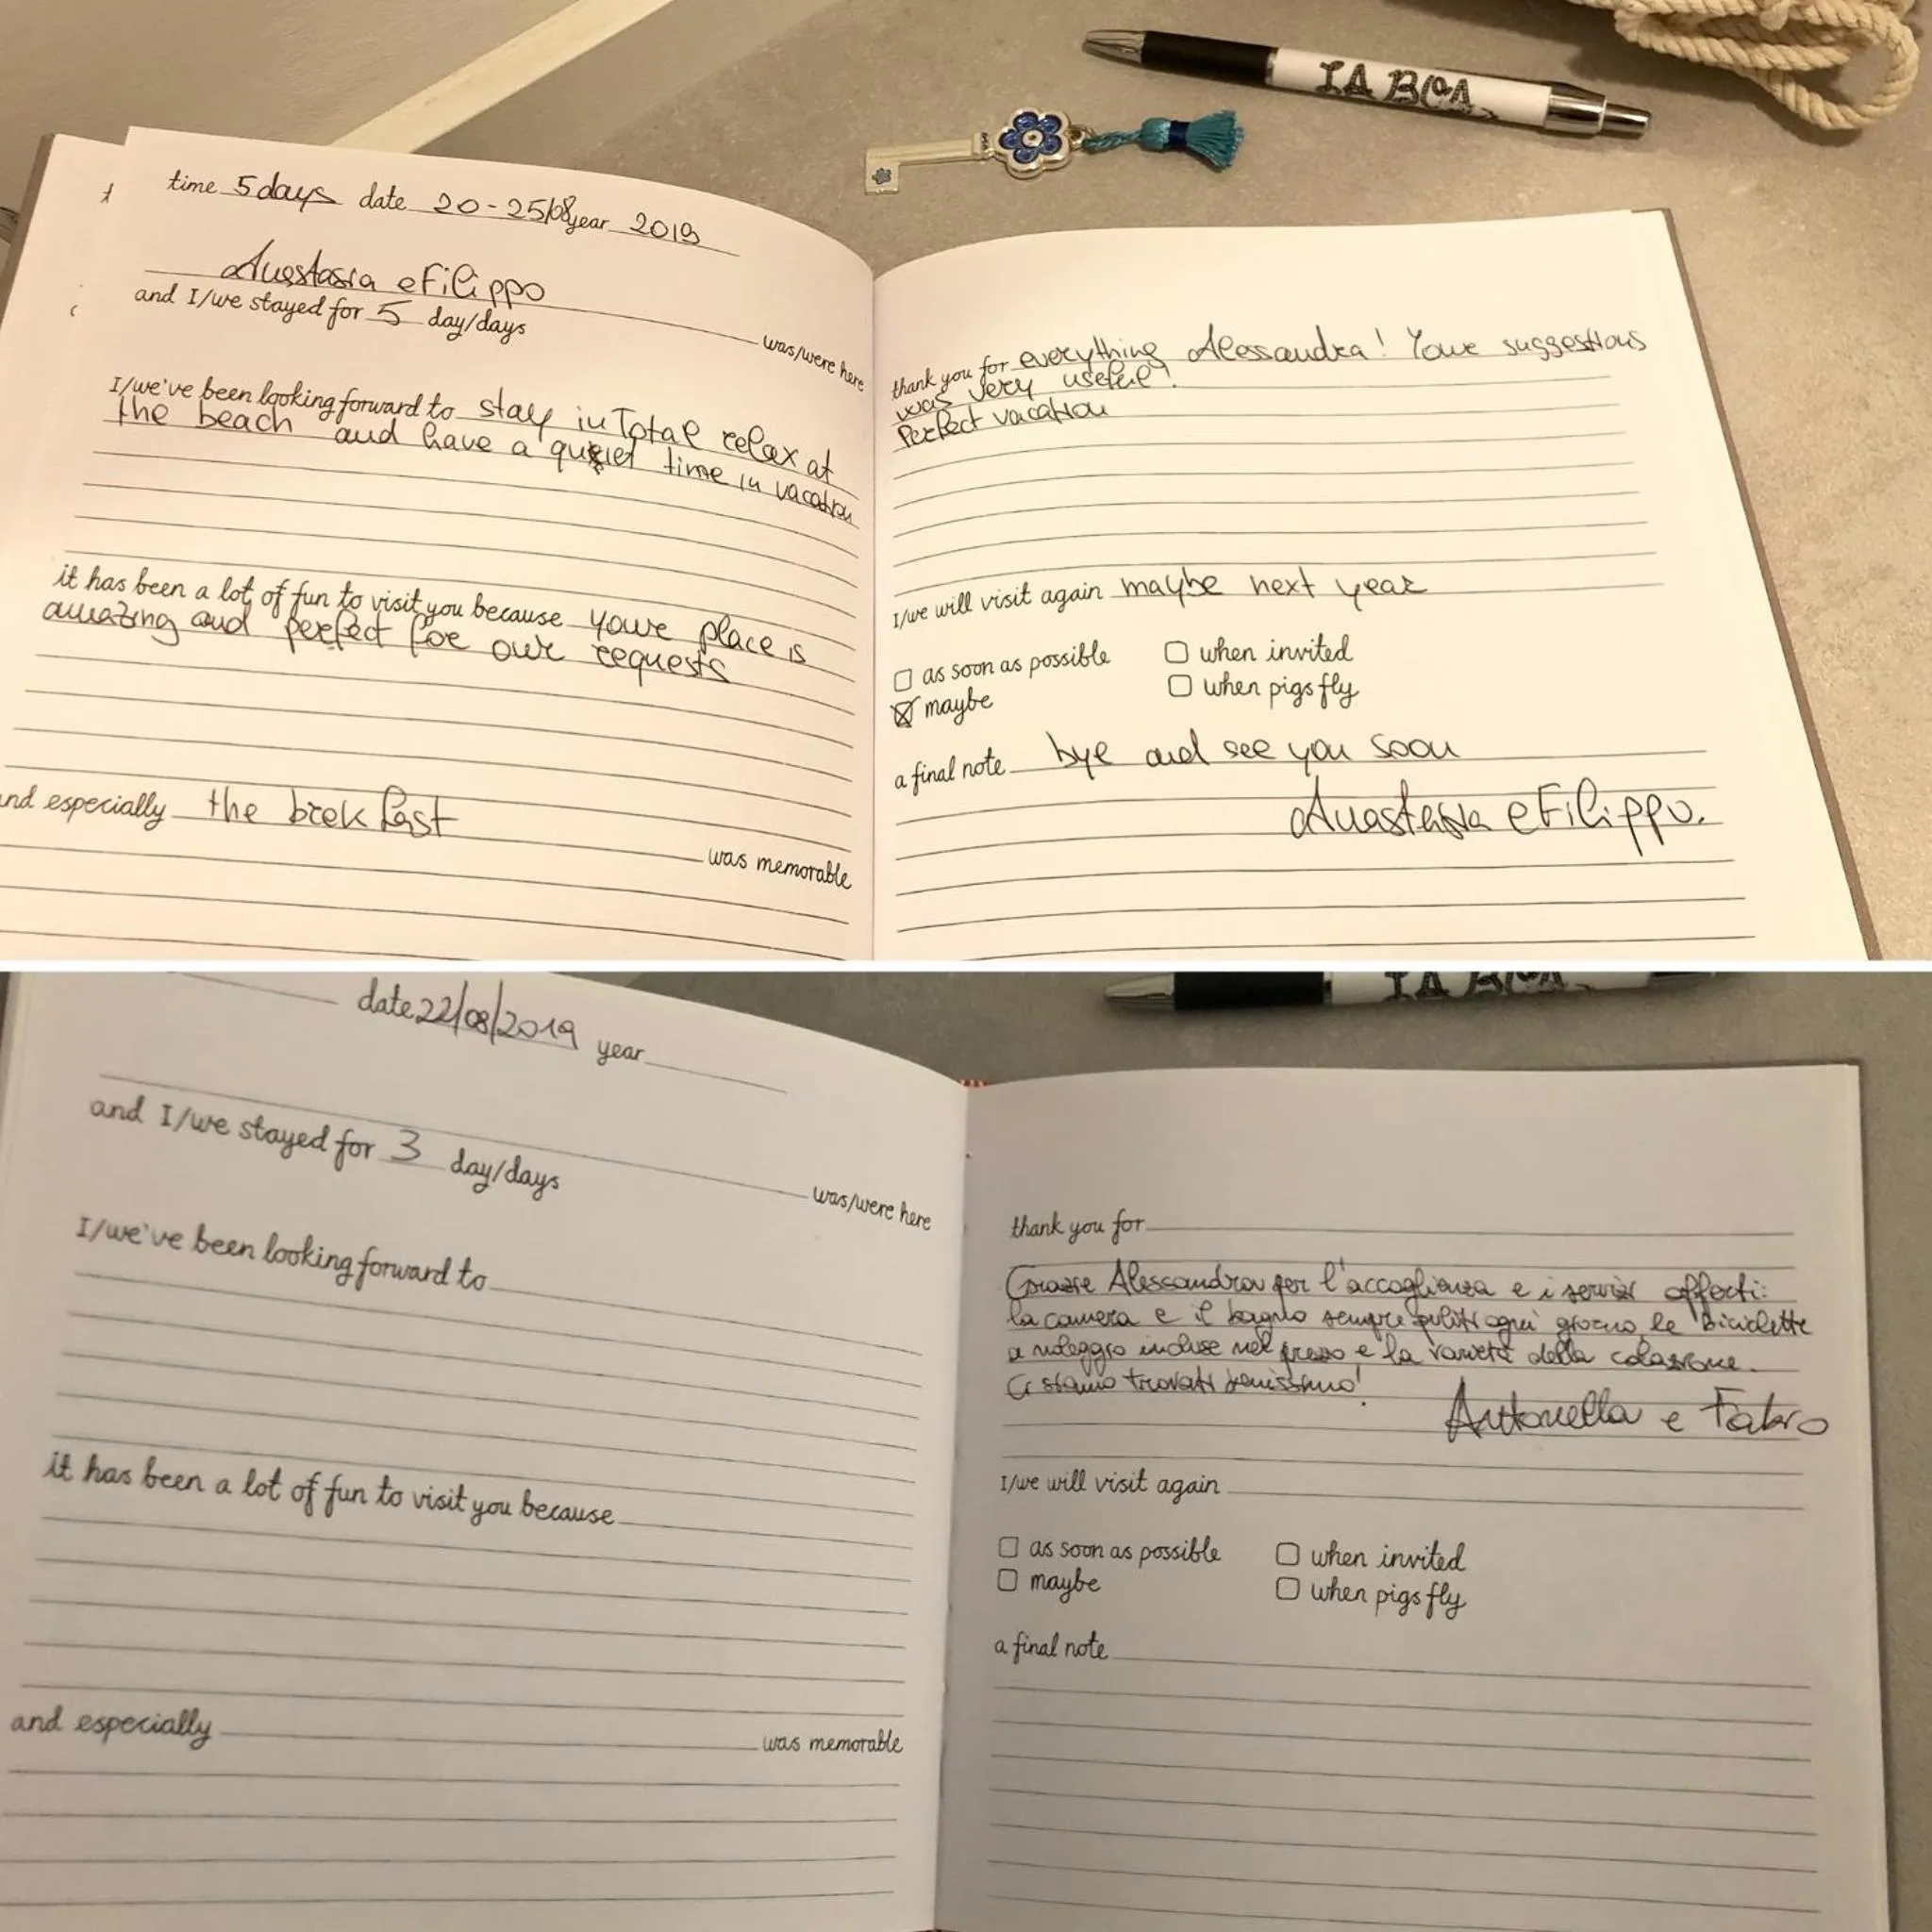 IA BCA
time 5 days date 20-25/08 year 2019
Anastasia e Filippo
was/were here
and I/we stayed for 5 day/days
I/we've been looking forward to stay in Total relax at
the beach and have a quiet time in vacation
it has been a lot of fun to visit you because youre place is
amazing and perfect for our requests
and especially the brekfast
was memorable
thank you for everything Alessandra! Youre suggestions
was very useful!
Perfect vacation
I/we will visit again maybe next year
as soon as possible when invited
maybe when pigs fly
a final note bye and see you soon
Anastasia e Filippo.
date 22/08/2019 year
was/were here
and I/we stayed for 3 day/days
I/we've been looking forward to
it has been a lot of fun to visit you because
and especially was memorable
thank you for
Grazie Alessandra per l'accoglienza e i servizi offerti:
la camera e il bagno sempre puliti ogni giorno, le biciclette
a noleggio incluse nel prezzo e la varietà della colazione.
Ci siamo trovati benissimo!
Antonella e Fabio
I/we will visit again
as soon as possible when invited
maybe when pigs fly
a final note